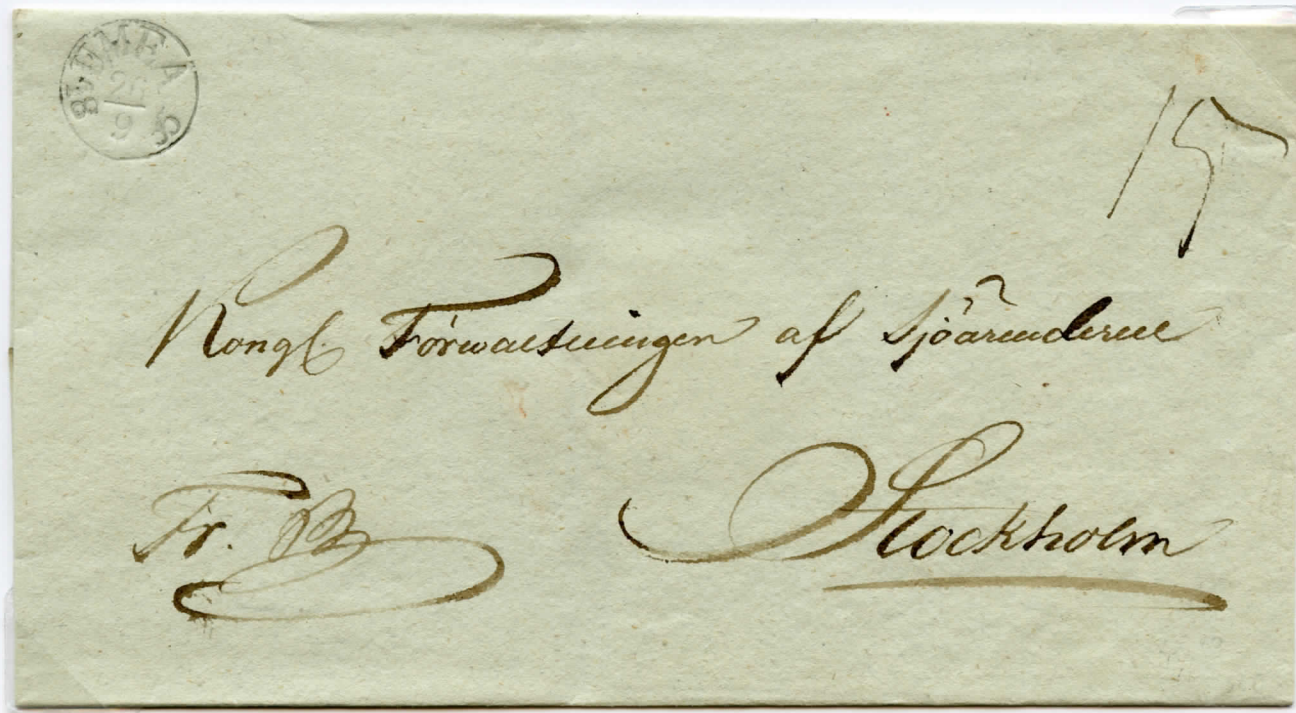 UMEA
26
9
15
Kongl. Förwaltningen af Sjöärenderne
Fr.
Stockholm